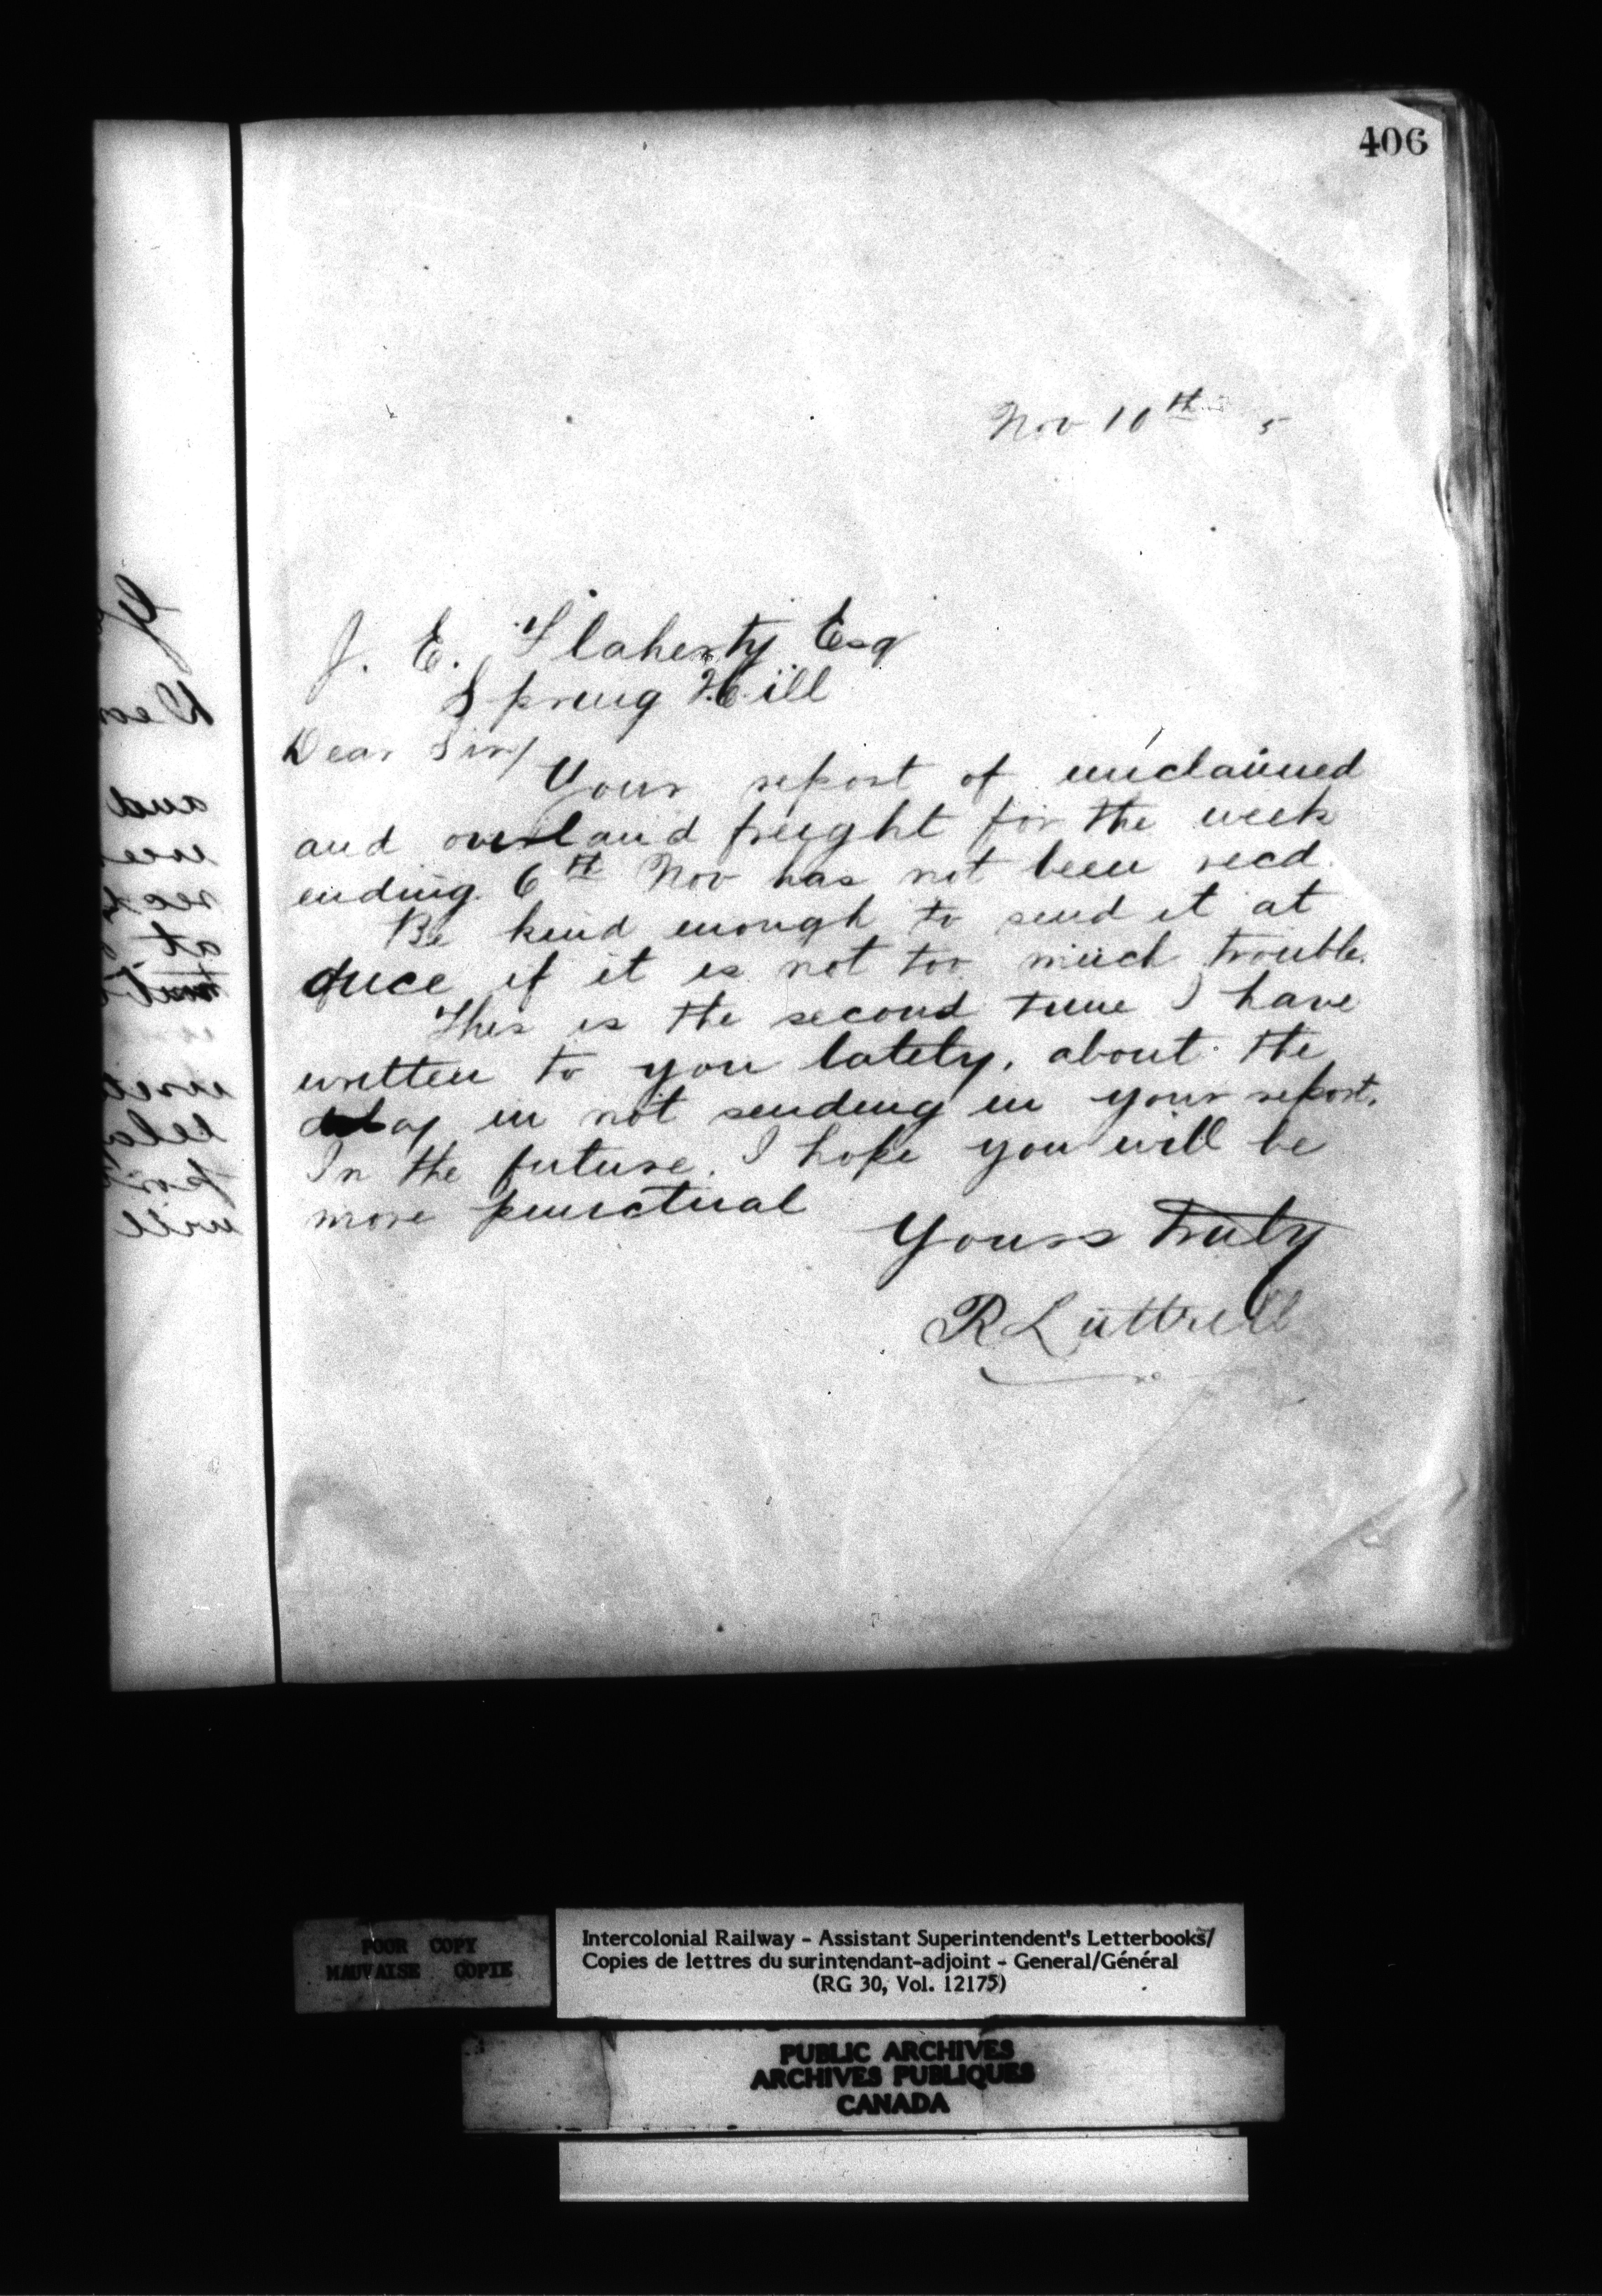 406
Nov 10th 5
J. E. Flaherty Esq
Spring Hill
Dear Sir/
Your report of unclaimed
and overland freight for the week
ending 6th Nov has not been recd.
Be kind enough to send it at
once if it is not too much trouble.
This is the second time I have
written to you lately, about the
delay in not sending in your report.
In the future. I hope you will be
more punctual
Yours truly
R Luttrell
POOR COPY
MAUVAISE COPIE
Intercolonial Railway - Assistant Superintendent's Letterbooks/
Copies de lettres du surintendant-adjoint - General/Général
(RG 30, Vol. 12175)
PUBLIC ARCHIVES
ARCHIVES PUBLIQUES
CANADA